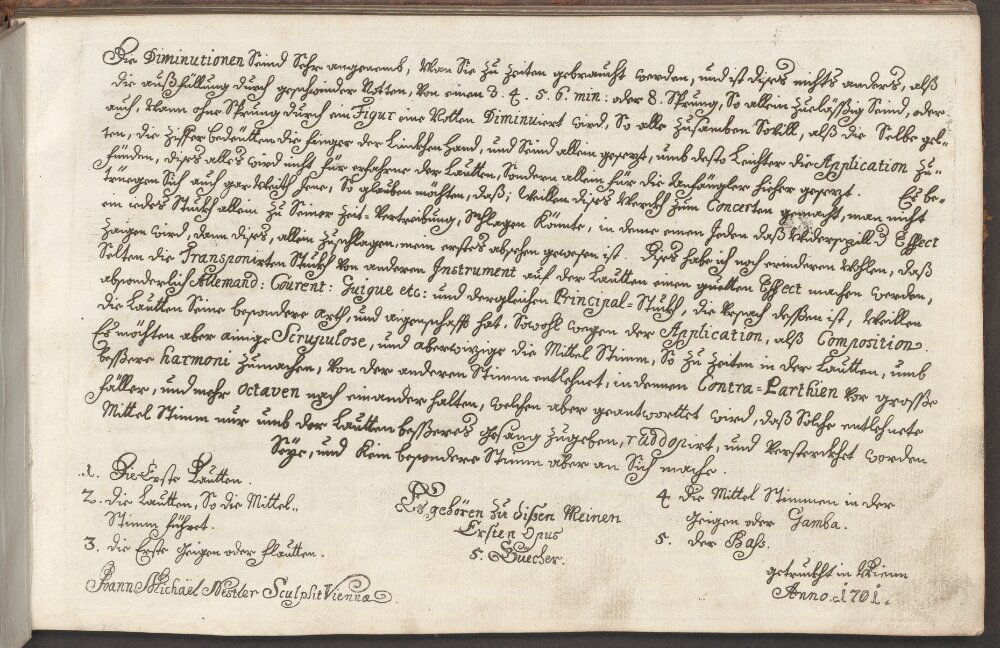 Die Diminutionen Seind Sehr angenemb, Wan Sie zu zeiten gebraucht werden, und ist dises nichts anders, alß
die außfüllung durch geschwinder Notten, von einen 3. 4. 5. 6. min: oder 8. Sprung, So allein zueläßig Seind, oder
auch, Wann ohne Sprung durch ein Figur eine Notten Diminuiert wird, So alle zusamben Sovill, alß die Selbe gel-
ten, die ziffer bedeütten die finger der Lincken Hand, und Seind allein gesezt, umb desto Leichter die Application zu-
fünden, dises alles wird nicht für erfahrne der Lautten, Sondern allein für die Anfängler hieher gesezt. Es be-
triegen Sich auch gar Weith Jene, So glauben möchten, daß; Weillen dises Werckh zum Concerten gemacht, man nicht
ein iedes Stuckh allein zu Seiner Zeit-Vertreibung, Schlagen Könnte, in deme einen Jeden daß Widerspill d Effect
zaigen wird, dann dises, allein zuschlagen, mein erstes absehen gewesen ist. Dises habe ich noch erinderen Wohlen, daß
Selten die Transponirten Stuckh von anderen Instrument auf der Lautten einen guetten Effect machen werden,
absonderlich Allemand: Courent: Guigue etc: und dergleichen Principal-Stuckh, die Ursach dessen ist, Weillen
die Lautten Seine besondere Arth, und aigenschafft hat, Sowohl wegen der Application, alß Composition.
Es möchten aber ainige Scrupulose, und aberwizige die Mittel Stimm, So zu zeiten in der Lautten, umb
beßere harmoni zumachen, von der anderen Stimm entlehnet, in dennen Contra-Parthien vor grosse
fähler, und mehr octaven nach ein ander halten, welchen aber geantworttet wird, daß Solche entlehnete
Mittel Stimm nur umb der Lautten beßeres gesang zugeben, raddopirt, und versterckhet worden
Seye, und Kein besondere Stimm aber an Sich mache.
1. Die Erste Lautten.
2. die Lautten, So die Mittel-
Stimm führet.
3. die Erste Geigen oder flautten.
Es, gehören zu disen Meinen
Ersten Opus
5. Büecher.
4. Die Mittel Stimmen in der
Geigen oder Gamba.
5. der Baß.
Joann Michaël Nestler Sculpsit Viennæ.
getruckht in Wienn
Anno. 1701.